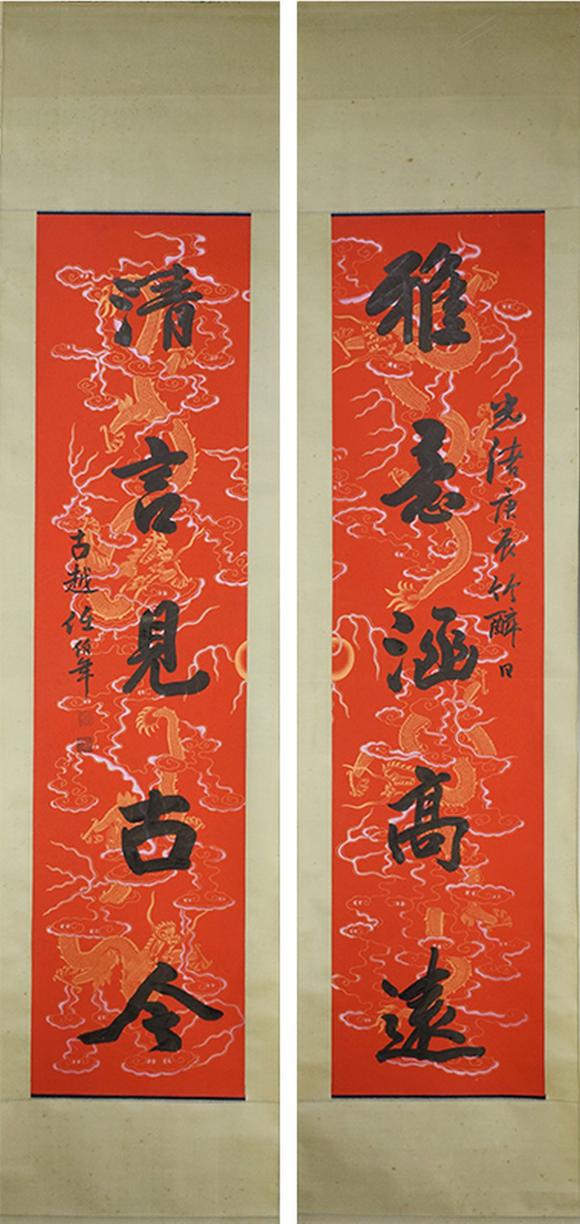 光緒庚辰竹醉日
雅意涵高遠
清言見古今
古越任伯年